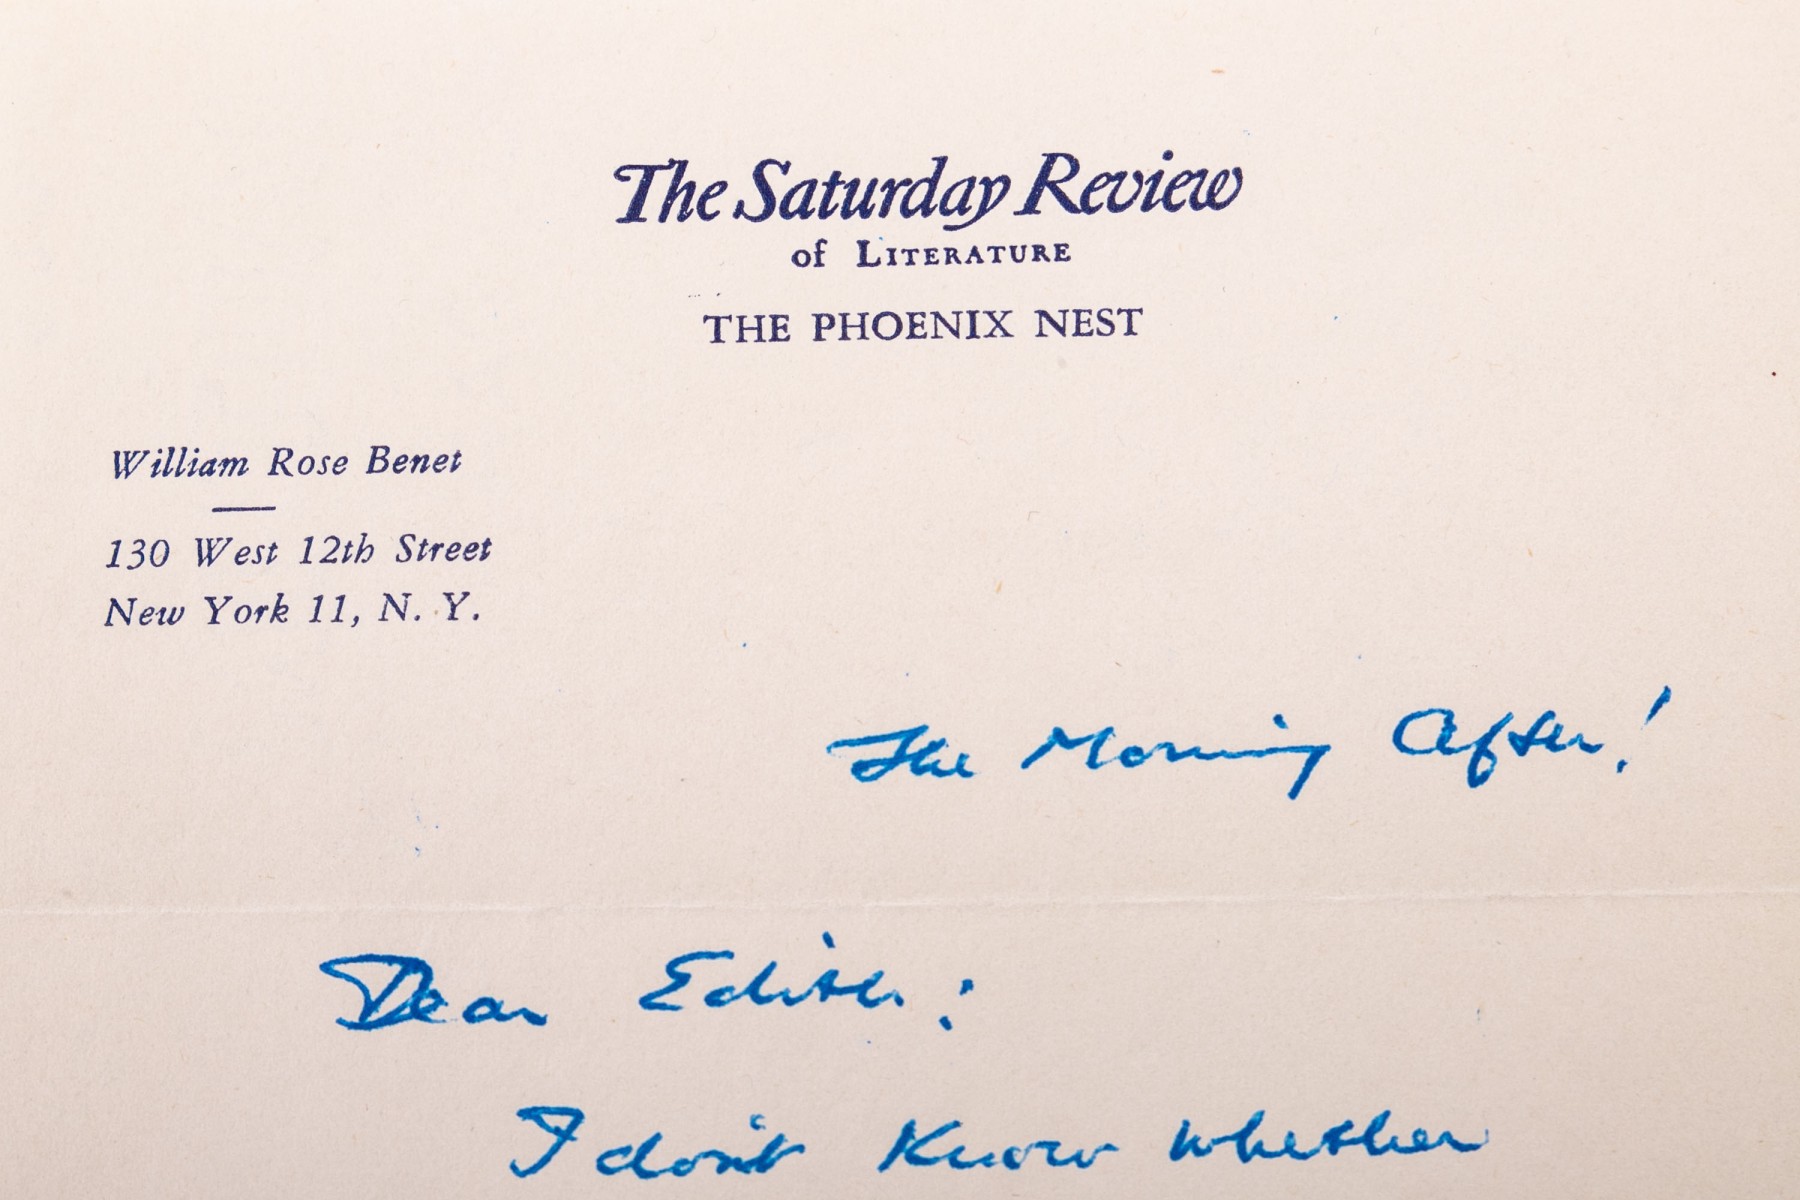 The Saturday Review
of LITERATURE
THE PHOENIX NEST
William Rose Benet
130 West 12th Street
New York 11, N. Y.
The Morning After!
Dear Edith:
I don't know whether